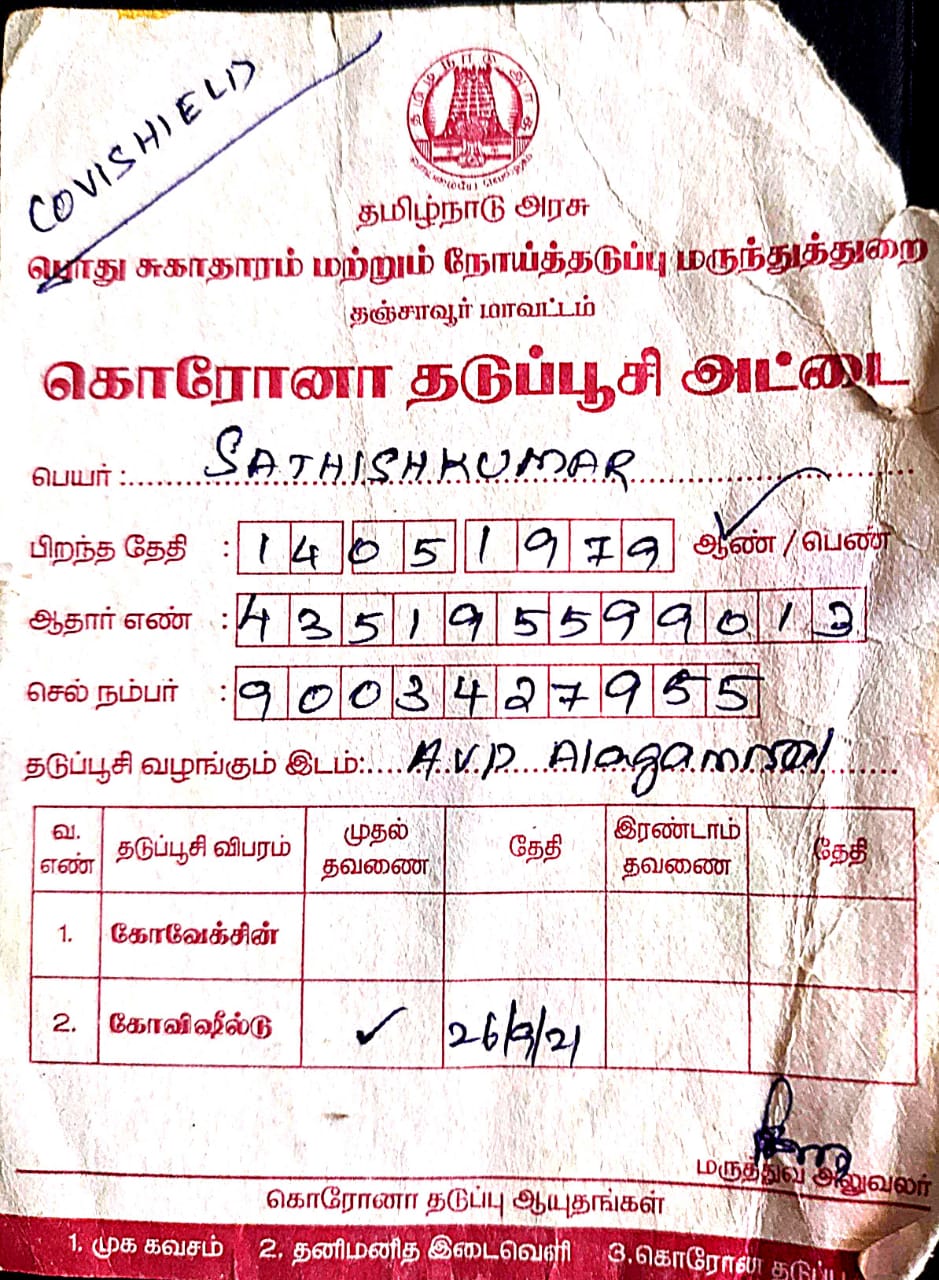 COVISHIELD
தமிழ்நாடு அரசு
பொது சுகாதாரம் மற்றும் நோய்த்தடுப்பு மருந்துத்துறை
தஞ்சாவூர் மாவட்டம்
கொரோனா தடுப்பூசி அட்டை
பெயர் : SATHISHKUMAR
பிறந்த தேதி : 14 05 1979 ஆண் / பெண்
ஆதார் எண் : 435195599013
செல் நம்பர் : 9003427955
தடுப்பூசி வழங்கும் இடம்: A.V.P
வ. எண் தடுப்பூசி விபரம் முதல் தவணை தேதி இரண்டாம் தவணை தேதி
1. கோவேக்சின்
2. கோவிஷீல்டு ✓ 26/9/21
மருத்துவ அலுவலர்
கொரோனா தடுப்பு ஆயுதங்கள்
1. முக கவசம் 2. தனிமனித இடைவெளி 3.கொரோன தடுப்பு